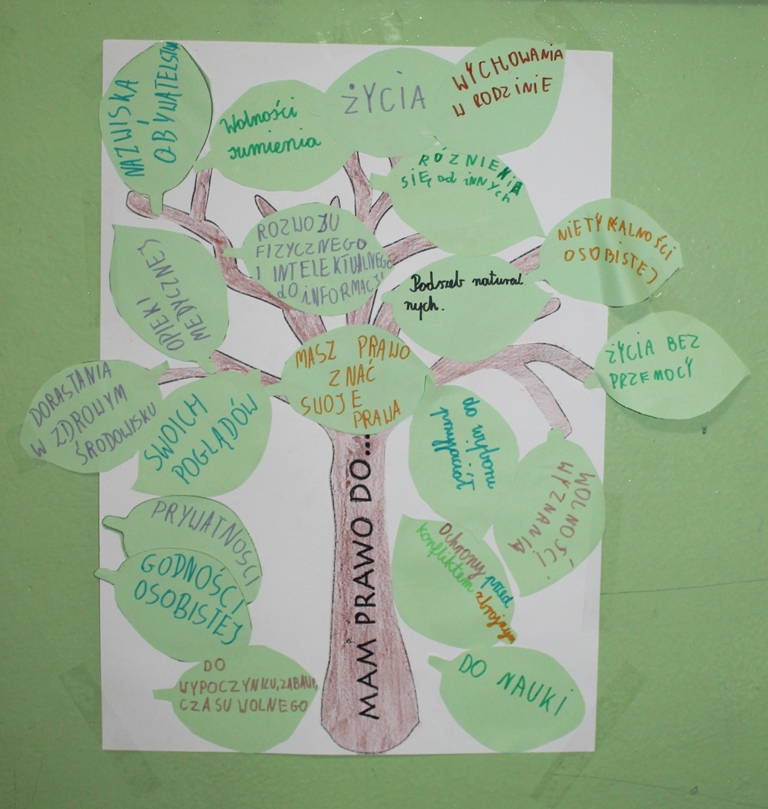 NAZWISKA
I
OBYWATELSTWA
Wolności
sumienia
ŻYCIA
WYCHOWANIA
W RODZINIE
RÓŻNIENIA
SIĘ od iNNYCH
NIETYKALNOŚCI
OSOBISTEJ
ROZWOJU
FIZYCZNEGO
I INTELEKTUALNEGO
dO iNFORMACJI
OPIEKI
MEDYCZNEJ
Podszeb natural
nych.
ŻYCIA BEZ
PRZEMOCY
MASZ PRAWO
ZNAĆ
SWOJE
PRAWA
DORASTANIA
W ZDROWYM
ŚRODOWISKU
SWOICH
POGLĄDÓW
WOLNOŚCI
WYZNANIA
PRYWATNOŚCI
GODNOŚCI
OSOBISTEJ
Ochrony przed
konfliktem zbrojnym
DO
WYPOCZYNKU, ZABAWY,
CZASU WOLNEGO
DO NAUKI
MAM PRAWO DO...